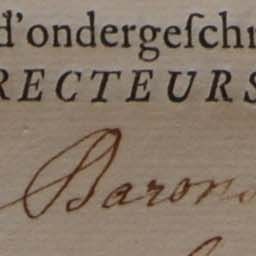 d'ondergeſchr
RECTEURS
Baron